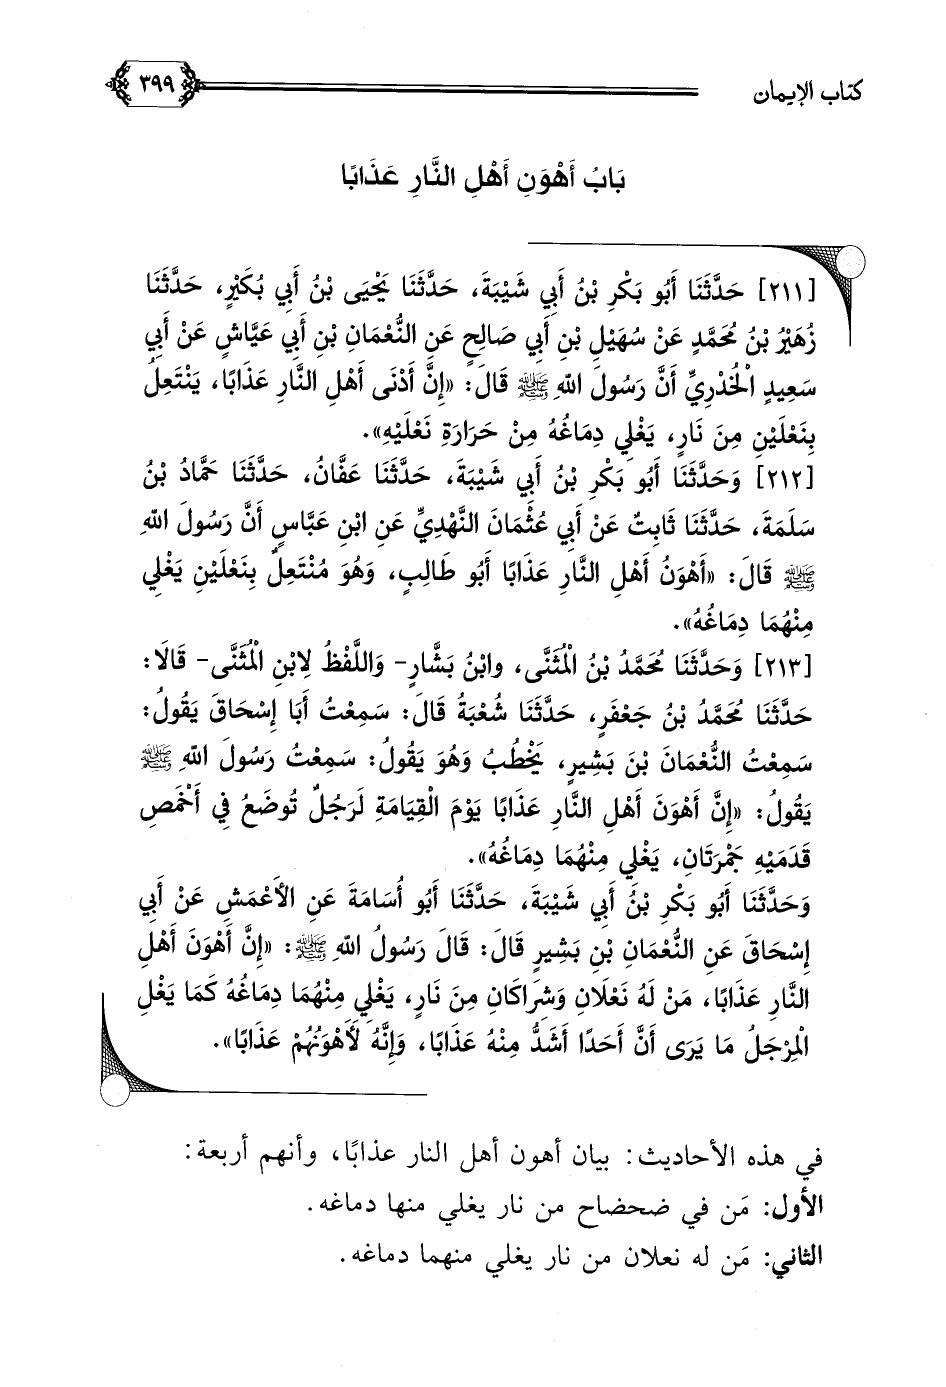 كتاب الإيمان
٣٩٩
بَابُ أَهْوَنِ أَهْلِ النَّارِ عَذَابًا
[٢١١] حَدَّثَنَا أَبُو بَكْرِ بْنُ أَبِي شَيْبَةَ، حَدَّثَنَا يَحْيَى بْنُ أَبِي بُكَيْرٍ، حَدَّثَنَا
زُهَيْرُ بْنُ مُحَمَّدٍ عَنْ سُهَيْلِ بْنِ أَبِي صَالِحٍ عَنِ النُّعْمَانِ بْنِ أَبِي عَيَّاشٍ عَنْ أَبِي
سَعِيدٍ الْخُدْرِيِّ أَنَّ رَسُولَ اللهِ ﷺ قَالَ: «إِنَّ أَدْنَى أَهْلِ النَّارِ عَذَابًا، يَنْتَعِلُ
بِنَعْلَيْنِ مِنَ نَارٍ، يَغْلِي دِمَاغُهُ مِنْ حَرَارَةِ نَعْلَيْهِ».
[٢١٢] وَحَدَّثَنَا أَبُو بَكْرِ بْنُ أَبِي شَيْبَةَ، حَدَّثَنَا عَفَّانُ، حَدَّثَنَا حَمَّادُ بْنُ
سَلَمَةَ، حَدَّثَنَا ثَابِتٌ عَنْ أَبِي عُثْمَانَ النَّهْدِيِّ عَنِ ابْنِ عَبَّاسٍ أَنَّ رَسُولَ اللهِ
ﷺ قَالَ: «أَهْوَنُ أَهْلِ النَّارِ عَذَابًا أَبُو طَالِبٍ، وَهُوَ مُنْتَعِلٌ بِنَعْلَيْنِ يَغْلِي
مِنْهُمَا دِمَاغُهُ».
[٢١٣] وَحَدَّثَنَا مُحَمَّدُ بْنُ الْمُثَنَّى، وابْنُ بَشَّارٍ- وَاللَّفْظُ لِابْنِ الْمُثَنَّى- قَالَا:
حَدَّثَنَا مُحَمَّدُ بْنُ جَعْفَرٍ، حَدَّثَنَا شُعْبَةُ قَالَ: سَمِعْتُ أَبَا إِسْحَاقَ يَقُولُ:
سَمِعْتُ النُّعْمَانَ بْنَ بَشِيرٍ، يَخْطُبُ وَهُوَ يَقُولُ: سَمِعْتُ رَسُولَ اللهِ ﷺ
يَقُولُ: «إِنَّ أَهْوَنَ أَهْلِ النَّارِ عَذَابًا يَوْمَ الْقِيَامَةِ لَرَجُلٌ تُوضَعُ فِي أَخْمَصِ
قَدَمَيْهِ جَمْرَتَانِ، يَغْلِي مِنْهُمَا دِمَاغُهُ».
وَحَدَّثَنَا أَبُو بَكْرِ بْنُ أَبِي شَيْبَةَ، حَدَّثَنَا أَبُو أُسَامَةَ عَنِ الأَعْمَشِ عَنْ أَبِي
إِسْحَاقَ عَنِ النُّعْمَانِ بْنِ بَشِيرٍ قَالَ: قَالَ رَسُولُ اللهِ ﷺ: «إِنَّ أَهْوَنَ أَهْلِ
النَّارِ عَذَابًا، مَنْ لَهُ نَعْلَانِ وَشِرَاكَانِ مِنَ نَارٍ، يَغْلِي مِنْهُمَا دِمَاغُهُ كَمَا يَغْلِ
الْمِرْجَلُ مَا يَرَى أَنَّ أَحَدًا أَشَدُّ مِنْهُ عَذَابًا، وَإِنَّهُ لَأَهْوَنُهُمْ عَذَابًا».
في هذه الأحاديث: بيان أهون أهل النار عذابًا، وأنهم أربعة:
الأول: مَن في ضحضاح من نار يغلي منها دماغه.
الثاني: مَن له نعلان من نار يغلي منهما دماغه.